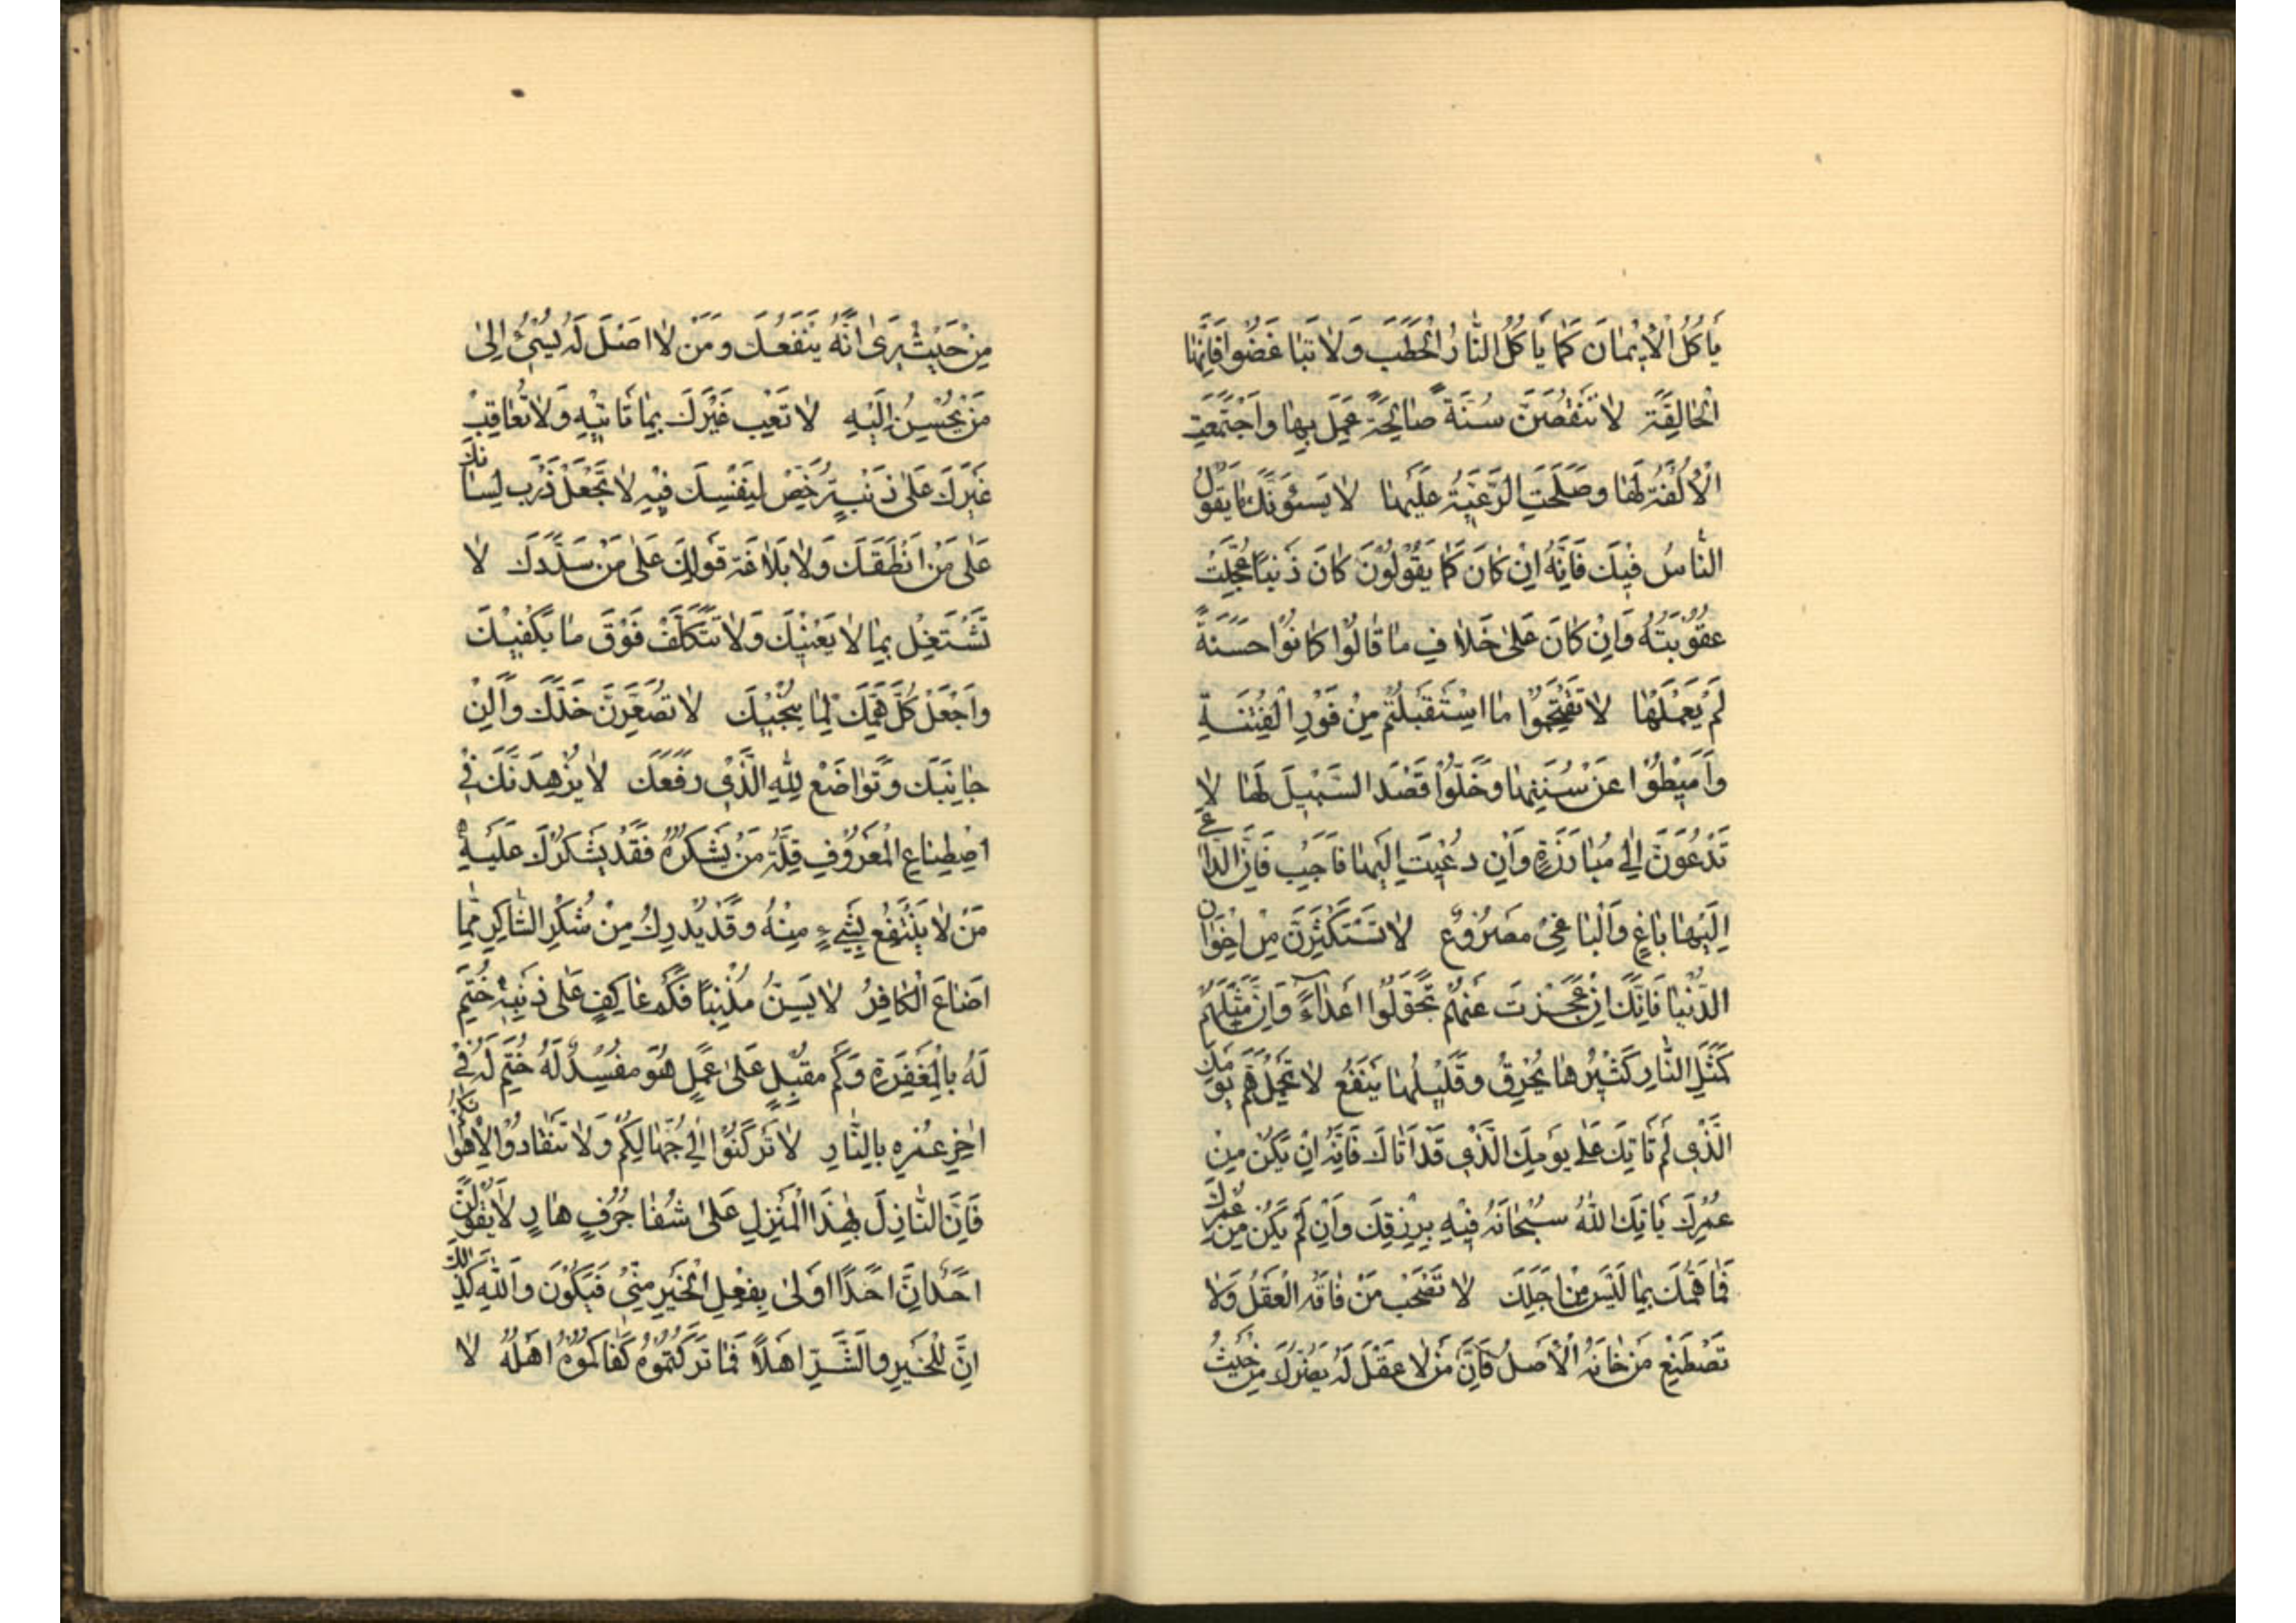 يَاكُلُ الْاِيْمَانَ كَمَا يَاكُلُ النَّارُ الْحَطَبَ وَلَا تَبَاغَضُوا فَاِنَّهَا
الْحَالِقَةُ لَا تَنْقُصَنَّ سُنَّةً صَالِحَةً عُمِلَ بِهَا وَاجْتَمَعَتِ
الْاُلْفَةُ لَهَا وَصَلَحَتِ الرَّعِيَّةُ عَلَيْهَا لَا يَسُوءَنَّكَ مَا يَقُولُ
النَّاسُ فِيْكَ فَاِنَّهُ اِنْ كَانَ كَمَا يَقُوْلُوْنَ كَانَ ذَنْبًا عُجِّلَتْ
عُقُوْبَتُهُ وَاِنْ كَانَ عَلىٰ خَلَافِ مَا قَالُوْا كَانُوْا حَسَنَةً
لَمْ يَعْمَلْهَا لَا تَقْتَحِمُوْا مَا اسْتَقْبَلْتُمْ مِنْ فَوْرِ الْفِتْنَةِ
وَاَمِيْطُوْا عَنْ سُنَنِهَا وَخَلُّوْا قَصْدَ السَّبِيْلَ لَهَا لَا
تَدْعُوَنَّ اِلىٰ مُبَارَزَةٍ وَاِنْ دُعِيْتَ اِلَيْهَا فَاَجِبْ فَاِنَّ الدَّاعِيَ
اِلَيْهَا بَاغٍ وَالْبَاغِيْ مَصْرُوْعٌ لَا تَسْتَكْثِرَنَّ مِنْ اِخْوَانِ
الدُّنْيَا فَاِنَّكَ اِنْ عَجَزْتَ عَنْهُمْ تَحَوَّلُوْا اَعْدَاءً وَاِنَّ مَثَلَهُمْ
كَمَثَلِ النَّارِ كَثِيْرُهَا يُحْرِقُ وَقَلِيْلُهَا يَنْفَعُ لَا تَحْمِلْ هَمَّ يَوْمِكَ
الَّذِيْ لَمْ تَاتِكَ عَلىٰ يَوْمِكَ الَّذِيْ قَدْ اَتَاكَ فَاِنَّهُ اِنْ يَكُنْ مِنْ
عُمُرِكَ يَاتِكَ اللّٰهُ سُبْحَانَهُ فِيْهِ بِرِزْقِكَ وَاِنْ لَمْ يَكُنْ مِنْ عُمُرِكَ
فَمَا هَمُّكَ بِمَا لَيْسَ مِنْ اَجَلِكَ لَا تَصْحَبْ مَنْ فَاتَهُ الْعَقْلُ وَلَا
تَصْطَنِعْ مَنْ خَانَهُ الْاَصْلُ فَاِنَّ مَنْ لَا عَقْلَ لَهُ يَضُرُّكَ مِنْ حَيْثُ
مِنْ حَيْثُ يَرىٰ اَنَّهُ يَنْفَعُكَ وَمَنْ لَا اَصْلَ لَهُ يُسِيْءُ اِلىٰ
مَنْ يُحْسِنُ اِلَيْهِ لَا تَعِبْ غَيْرَكَ بِمَا تَاتِيْهِ وَلَا تُعَاقِبْ
غَيْرَكَ عَلىٰ ذَنْبٍ تُرَخِّصُ لِنَفْسِكَ فِيْهِ لَا تَجْعَلْ ذَرَبَ لِسَانِكَ
عَلىٰ مَنْ اَنْطَقَكَ وَلَا بَلَاغَةَ قَوْلِكَ عَلىٰ مَنْ سَدَّدَكَ لَا
تَشْتَغِلْ بِمَا لَا يَعْنِيْكَ وَلَا تَتَكَلَّفْ فَوْقَ مَا يَكْفِيْكَ
وَاجْعَلْ كُلَّ هَمِّكَ لِمَا يُنْجِيْكَ لَا تُصَعِّرَنَّ خَدَّكَ وَاَلِنْ
جَانِبَكَ وَتَوَاضَعْ لِلّٰهِ الَّذِيْ رَفَعَكَ لَا يُزْهِدَنَّكَ فِيْ
اصْطِنَاعِ الْمَعْرُوْفِ قِلَّةُ مَنْ يَشْكُرُهُ فَقَدْ يَشْكُرُكَ عَلَيْهِ
مَنْ لَا يَنْتَفِعُ بِشَيْءٍ مِنْهُ وَقَدْ يُدْرِكُ مِنْ شُكْرِ الشَّاكِرِ مِمَّا
اَضَاعَ الْكَافِرُ لَا يَئِسَنَّ مُذْنِبًا فَكَمْ عَاكِفٍ عَلىٰ ذَنْبِهِ خُتِمَ
لَهُ بِالْمَغْفِرَةِ وَكَمْ مُقْبِلٍ عَلىٰ عَمَلٍ هُوَ مُفْسِدٌ لَهُ خُتِمَ لَهُ فِيْ
اٰخِرِ عُمْرِهِ بِالنَّارِ لَا تَرْكَنُوْا اِلىٰ جُهَّالِكُمْ وَلَا تَنْقَادُوْا لِاَهْوَائِكُمْ
فَاِنَّ النَّازِلَ بِهٰذَا الْمَنْزِلِ عَلىٰ شَفَا جُرُفٍ هَارٍ لَا يَقُوْلَنَّ
اَحَدٌ اِنَّ اَحَدًا اَوْلىٰ بِفِعْلِ الْخَيْرِ مِنِّيْ فَيَكُوْنَ وَاللّٰهِ كَذٰلِكَ
اِنَّ لِلْخَيْرِ وَالشَّرِّ اَهْلًا فَمَا تَرَكْتُمُوْهُ كَفَاكُمُوْهُ اَهْلُهُ لَا